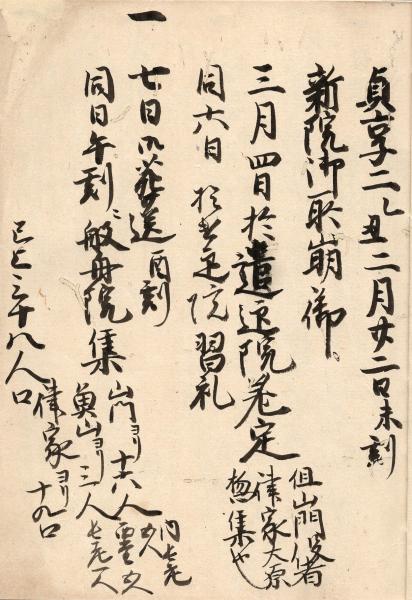 貞享二乙丑二月廿二日未刻
新院御所崩御
三月四日於遣迎院巻定
但山門役者
律家大原
惣集也
同六日於遣迎院習礼
一七日御葬送酉刻
同日午刻ニ般舟院集
山門ヨリ十六人
魚山ヨリ三人
律家ヨリ十九口
已上三十八人口